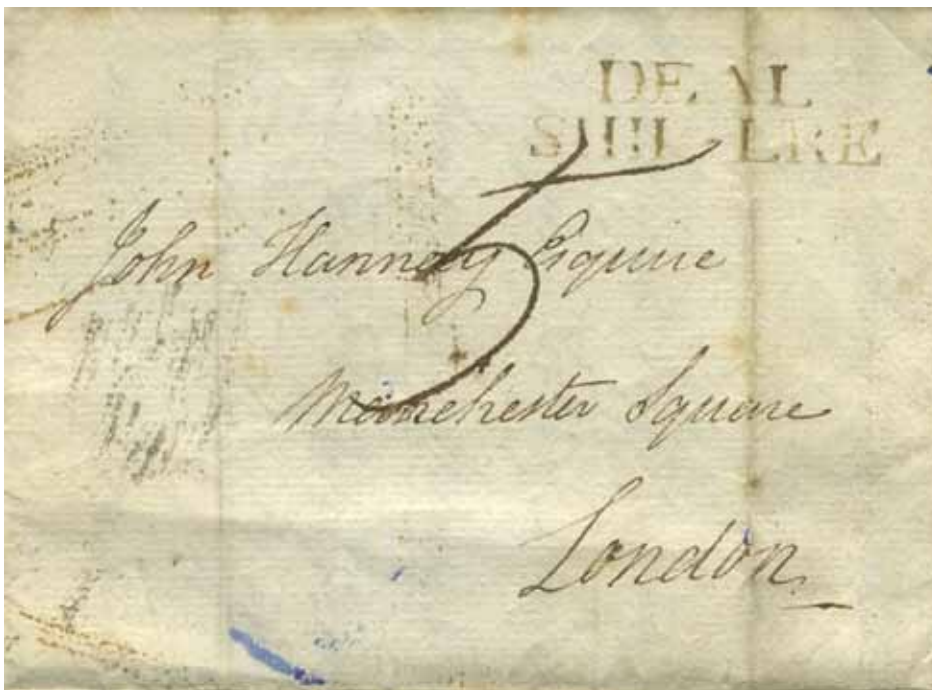 DEAL
5
John Hannay Esquire
Manchester Square
London